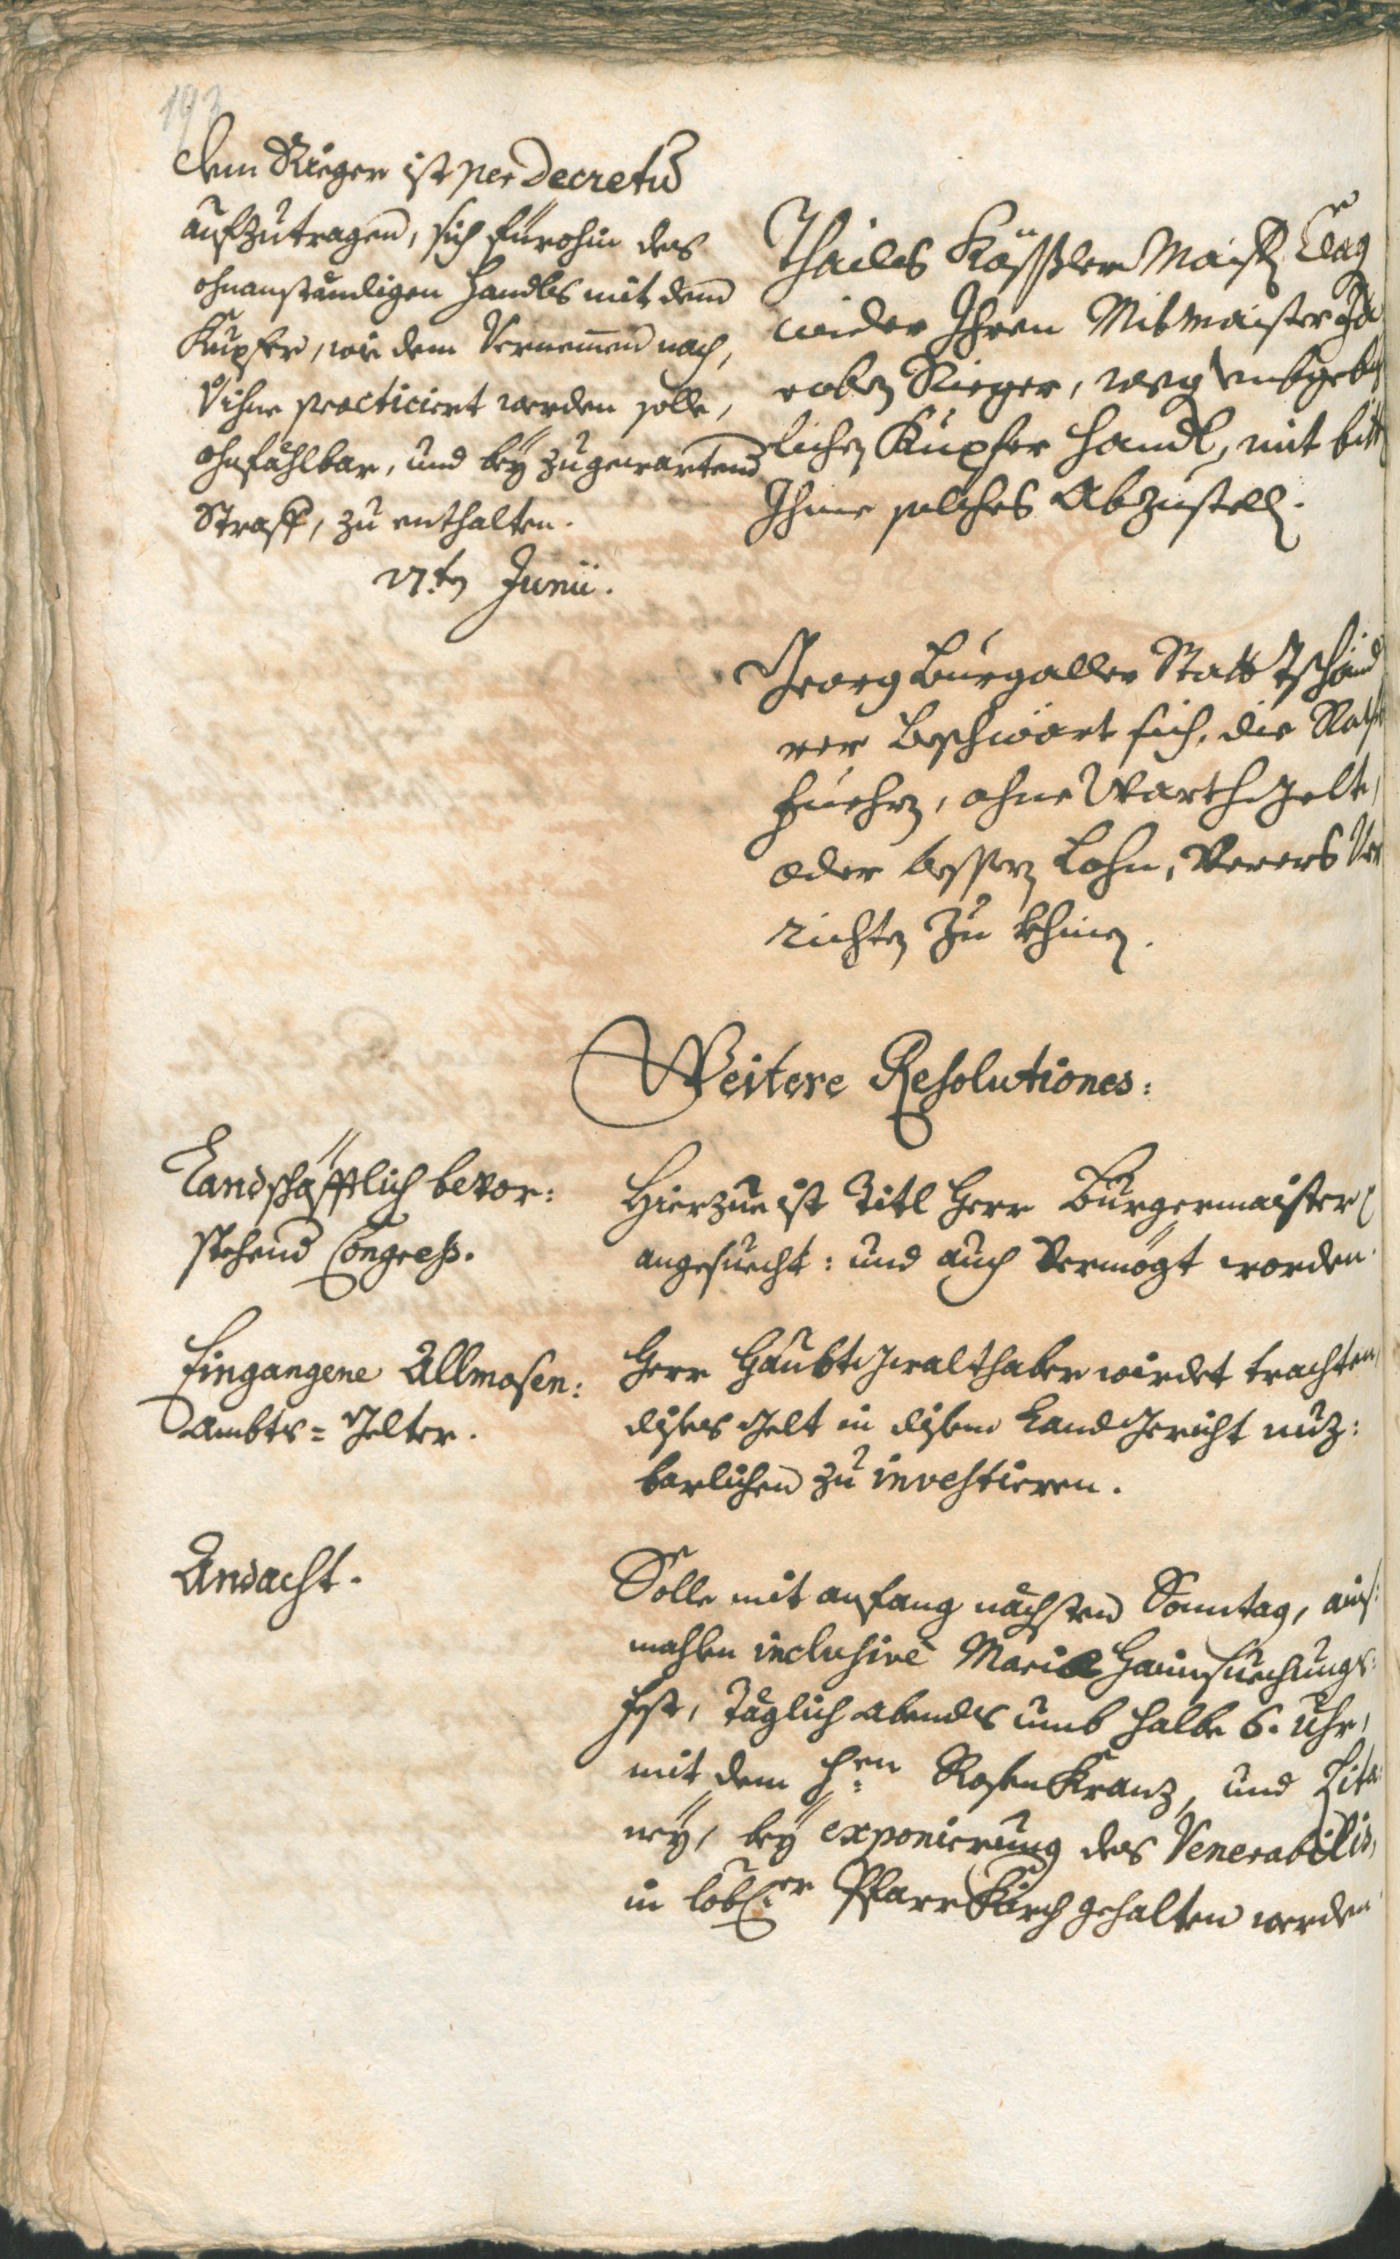 193
dem Rieger ist per Decretum
aufzutragen, sich fürohin des
ohnanständigen Handls mit dem
Kupfer, wie dem Vernemmen nach,
practiciert werden solle,
ohnfählbar, und bey zugewartend
Straff, zu enthalten.
17.ten Junii.
Thails Kössler Maister Clag
wider Ihren Mitmaister Ja
coben Rieger, weg
lichen Kupfer Handl, mit bitt
Ihme solches Abzustell.
Georg Burgaller Statt Tschand
rer beschwört sich, die Raths
Fuehren, ohne Warth Gelt,
oder bessern Lohn, Ver
richten zu khinen.
Weitere Resolutiones:
Landschäfftlich bevor:
stehend Congress.
Hierzue ist Titl Herr Burgermaister
angesuecht: und auch Vermögt worden.
Eingangene Allmosen:
Ambts= Gelter.
Herr Haubt Gwalthaber wirdet trachten,
dises Gelt in disem Land Gericht nuz:
barlichen zu investieren.
Andacht.
Solle mit anfang nächsten Sonntag, ains:
mahlen inclusivè Mariae Haimsuechungs:
Fest, Täglich abends umb halbe 6. Uhr,
mit dem H:en Rosen Kranz, und Lita:
ney, bey exponierung des Venerabilis,
in Lobl:er Pfarr Kirch gehalten werden